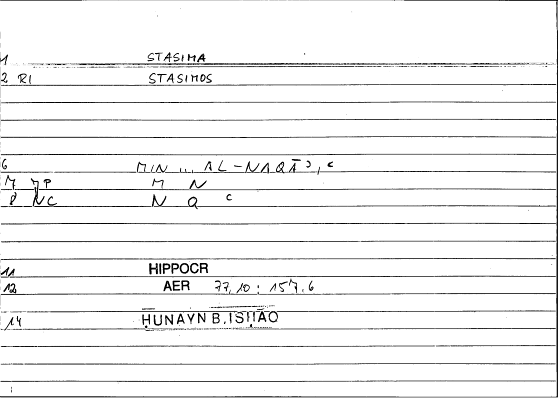 1 STASIMA
2 RI STASIMOS
6 MIN ... AL-NAQĀʾ, ʿ
7 7P M N
8 NC N Q ʿ
11 HIPPOCR
12 AER 77,10 : 157.6
14 ḤUNAYN B.ISḤĀQ